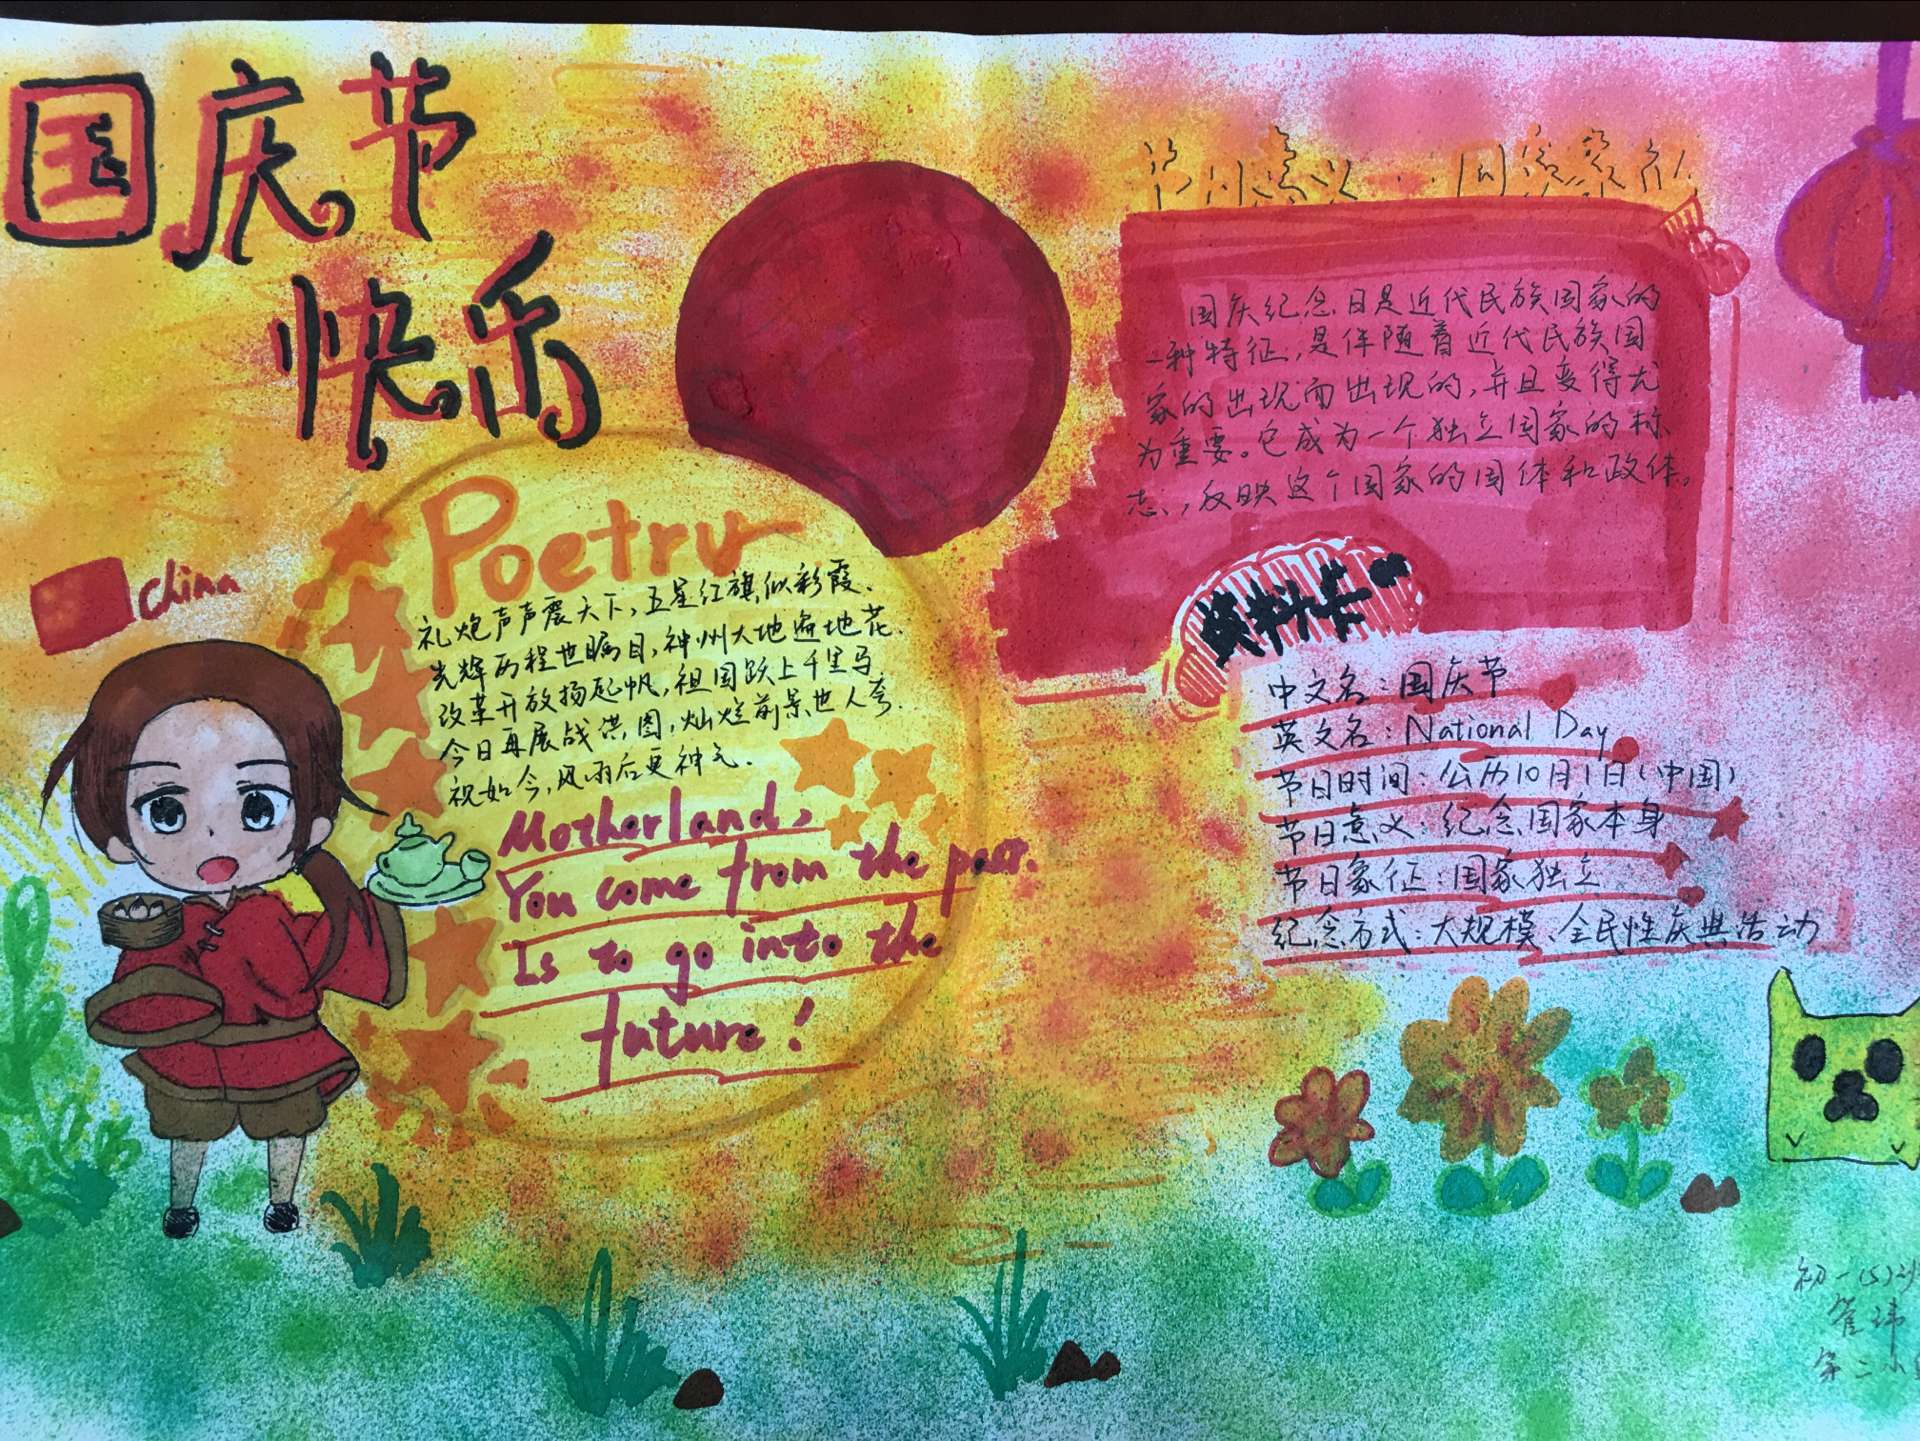 国庆节
快乐
China
Poetry
礼炮声声震天下，五星红旗似彩霞．
光辉历程世瞩目，神州大地遍地花．
改革开放扬起帆，祖国跃上千里马．
今日再展战洪图，灿烂前景世人夸．
祝如今，风雨后更神元．
Motherland,
You come from the past.
Is to go into the
future!
节日意义
国庆纪念日是近代民族国家的
一种特征，是伴随着近代民族国
家的出现而出现的，并且变得尤
为重要。它成为一个独立国家的标
志，反映这个国家的国体和政体。
中文名：国庆节
英文名：National Day
节日时间：公历10月1日（中国）
节日意义：纪念国家本身
节日象征：国家独立
纪念方式：大规模、全民性庆典活动
初一(5)
第二小